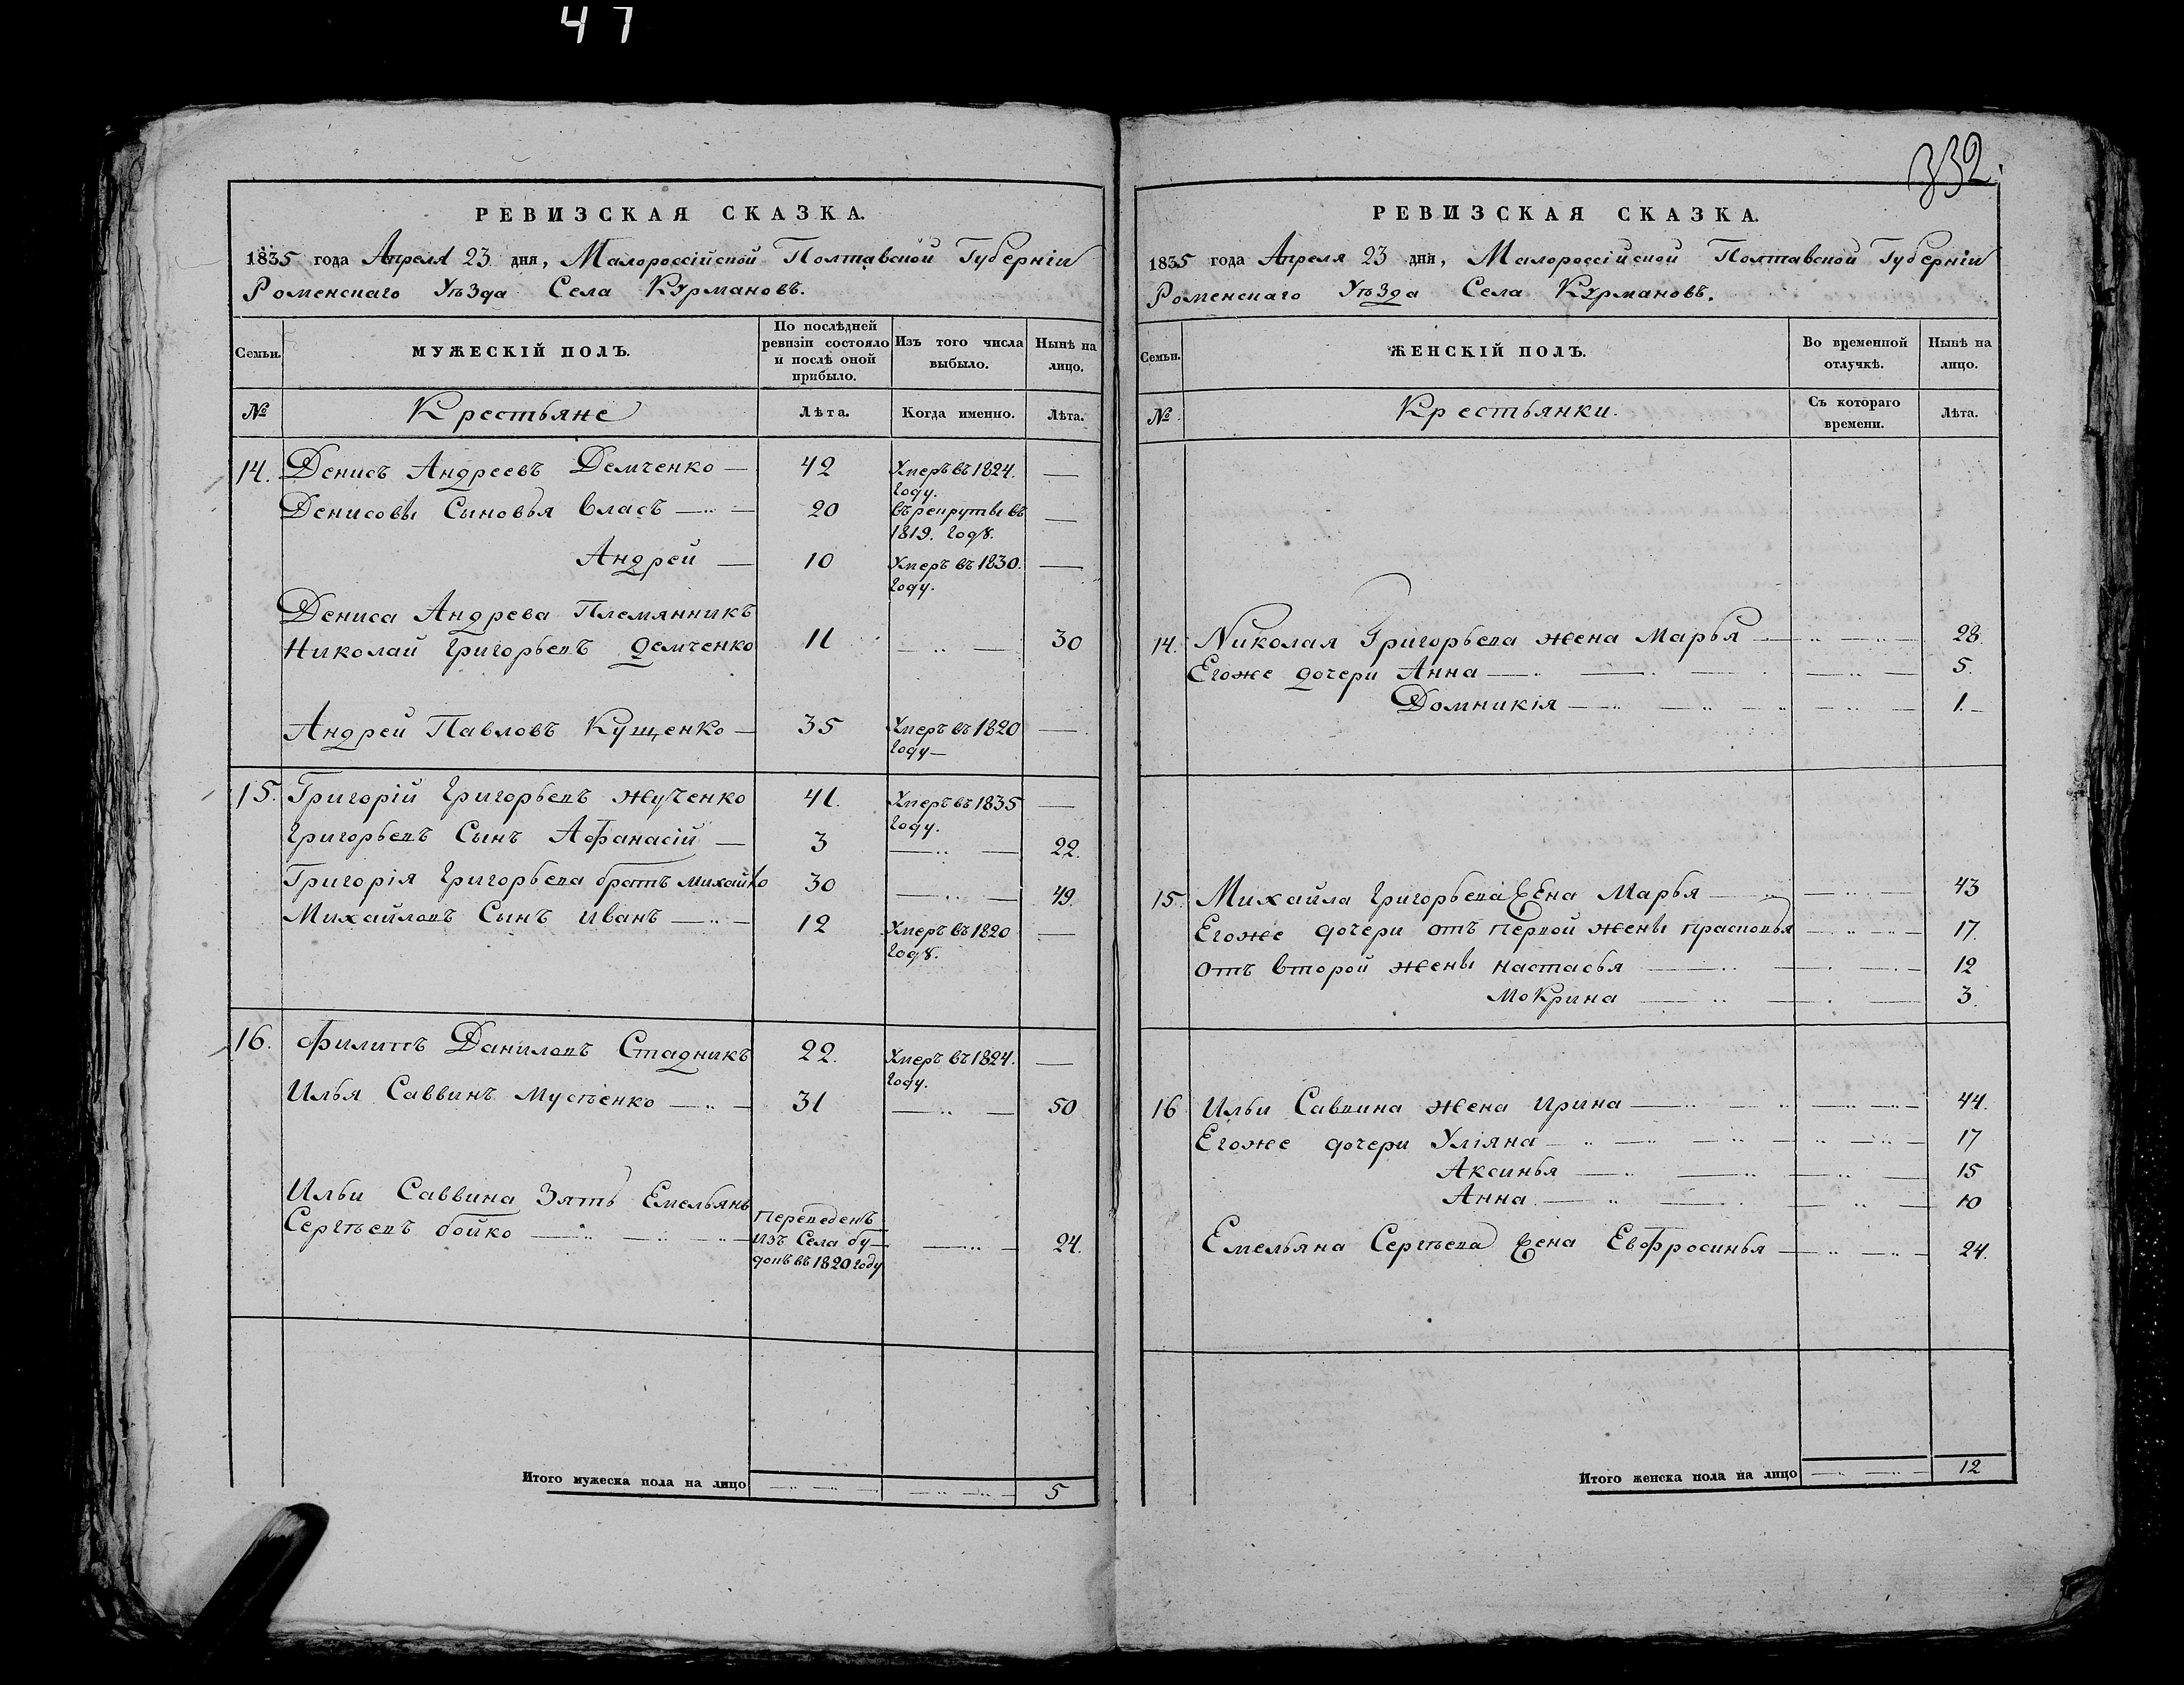 47
332.
РЕВИЗСКАЯ СКАЗКА.
1835 года Апреля 23 дня, Малороссійской Полтавской Губерніи
Роменскаго Уѣзда Села Курмановъ.
Семьи.
МУЖЕСКІЙ ПОЛЪ.
По послѣдней ревизіи состояло и послѣ оной прибыло.
Изъ того числа выбыло.
Нынѣ на лицо.
№ Крестьяне Лѣта. Когда именно. Лѣта.
14. Денисъ Андреевъ Демченко — 42 Умеръ въ 1824. году. —
Денисовы Сыновья Власъ — 20 въ рекруты въ 1819. году. —
Андрей — 10 Умеръ въ 1830. году. —
Дениса Андрева Племянникъ
Николай Григорьевъ Демченко 11 — 30
Андрей Павловъ Кущенко — 35 Умеръ въ 1820 году —
15. Григорій Григорьевъ Жученко 41. Умеръ въ 1835 году. —
Григорьевъ Сынъ Афанасій — 3 — 22.
Григорія Григорьева братъ Михайло 30 — 49.
Михайловъ Сынъ Иванъ — 12 Умеръ въ 1820 году. —
16. Филипъ Даниловъ Стадникъ 22. Умеръ въ 1824. году. —
Илья Саввинъ Мусѣенко — 31 — 50
Ильи Саввина Зять Емельянъ
Сергѣевъ бойко — Переведенъ изъ Села бу-довъ въ 1820 году — 24.
Итого мужеска пола на лицо — — 5
РЕВИЗСКАЯ СКАЗКА.
1835 года Апреля 23 дня, Малороссійской Полтавской Губерніи
Роменскаго Уѣзда Села Курмановъ.
Семьи.
ЖЕНСКІЙ ПОЛЪ.
Во временной отлучкѣ.
Нынѣ на лицо.
№ Крестьянки. Съ котораго времени. Лѣта.
14. Николая Григорьева жена Марья — 28.
Егоже дочери Анна — 5.
Домникія — 1.
15. Михайла Григорьева Жена Марья — 43
Егоже дочери отъ первой жены прасковья — 17.
отъ второй жены настасья — 12
мокрина — 3.
16 Ильи Саввина жена Ирина — 44.
Егоже дочери Уліяна — 17
Аксинья — 15
Анна — 10
Емельяна Сергѣева Жена Евфросинья — 24.
Итого женска пола на лицо — 12